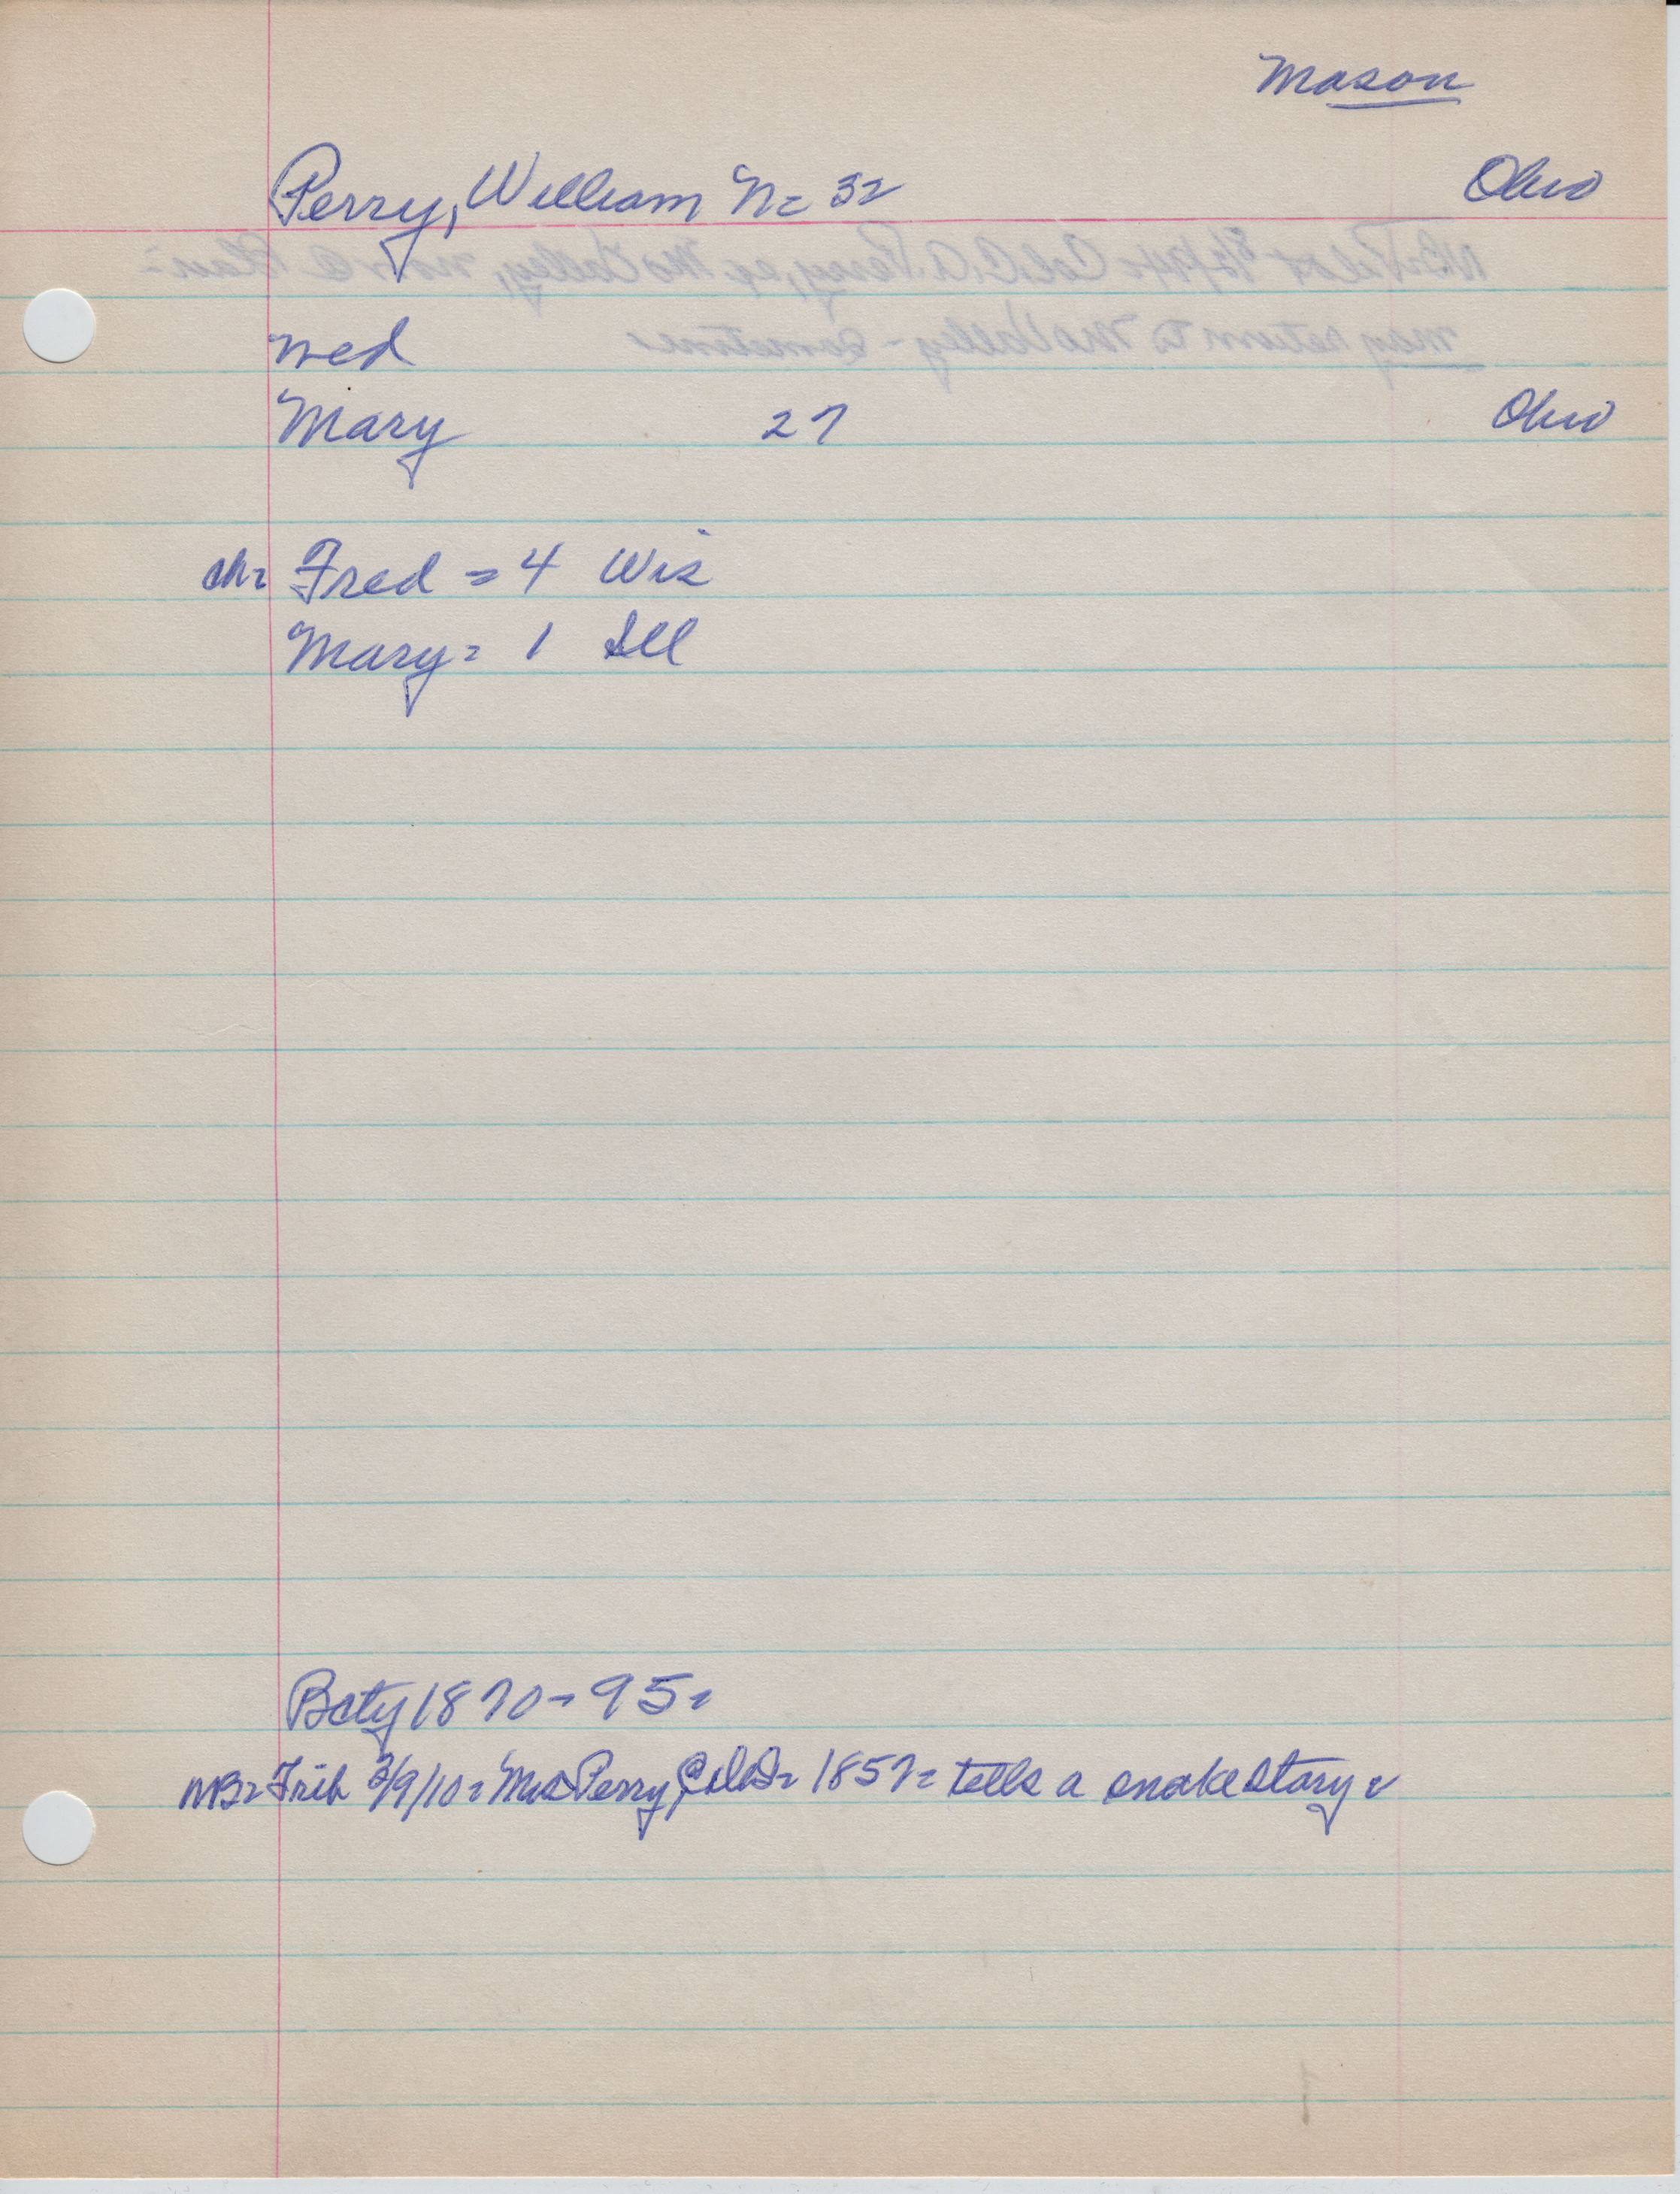 Mason
Perry, William N= 32 Ohio
wed
Mary 27 Ohio
ch= Fred = 4 Wis
Mary= 1 Ill
Bcty 1870= 95=
NB= Trib 3/9/10= Mrs Perry, = 1857= tells a snake story=